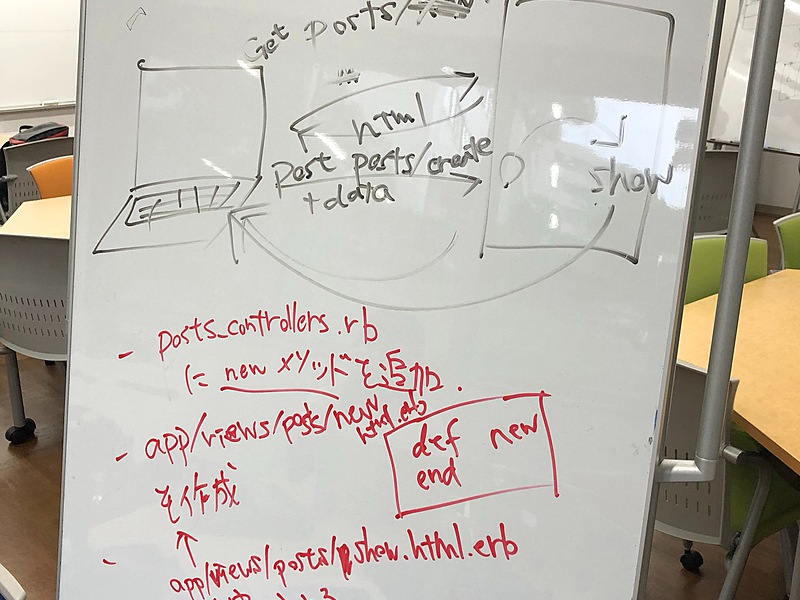 Get posts/
html
Post posts/create
+data
show
- posts_controllers.rb
に new メソッドを追加.
- app/views/posts/new.html.erb
を作成
def new
end
- app/views/posts/show.html.erb